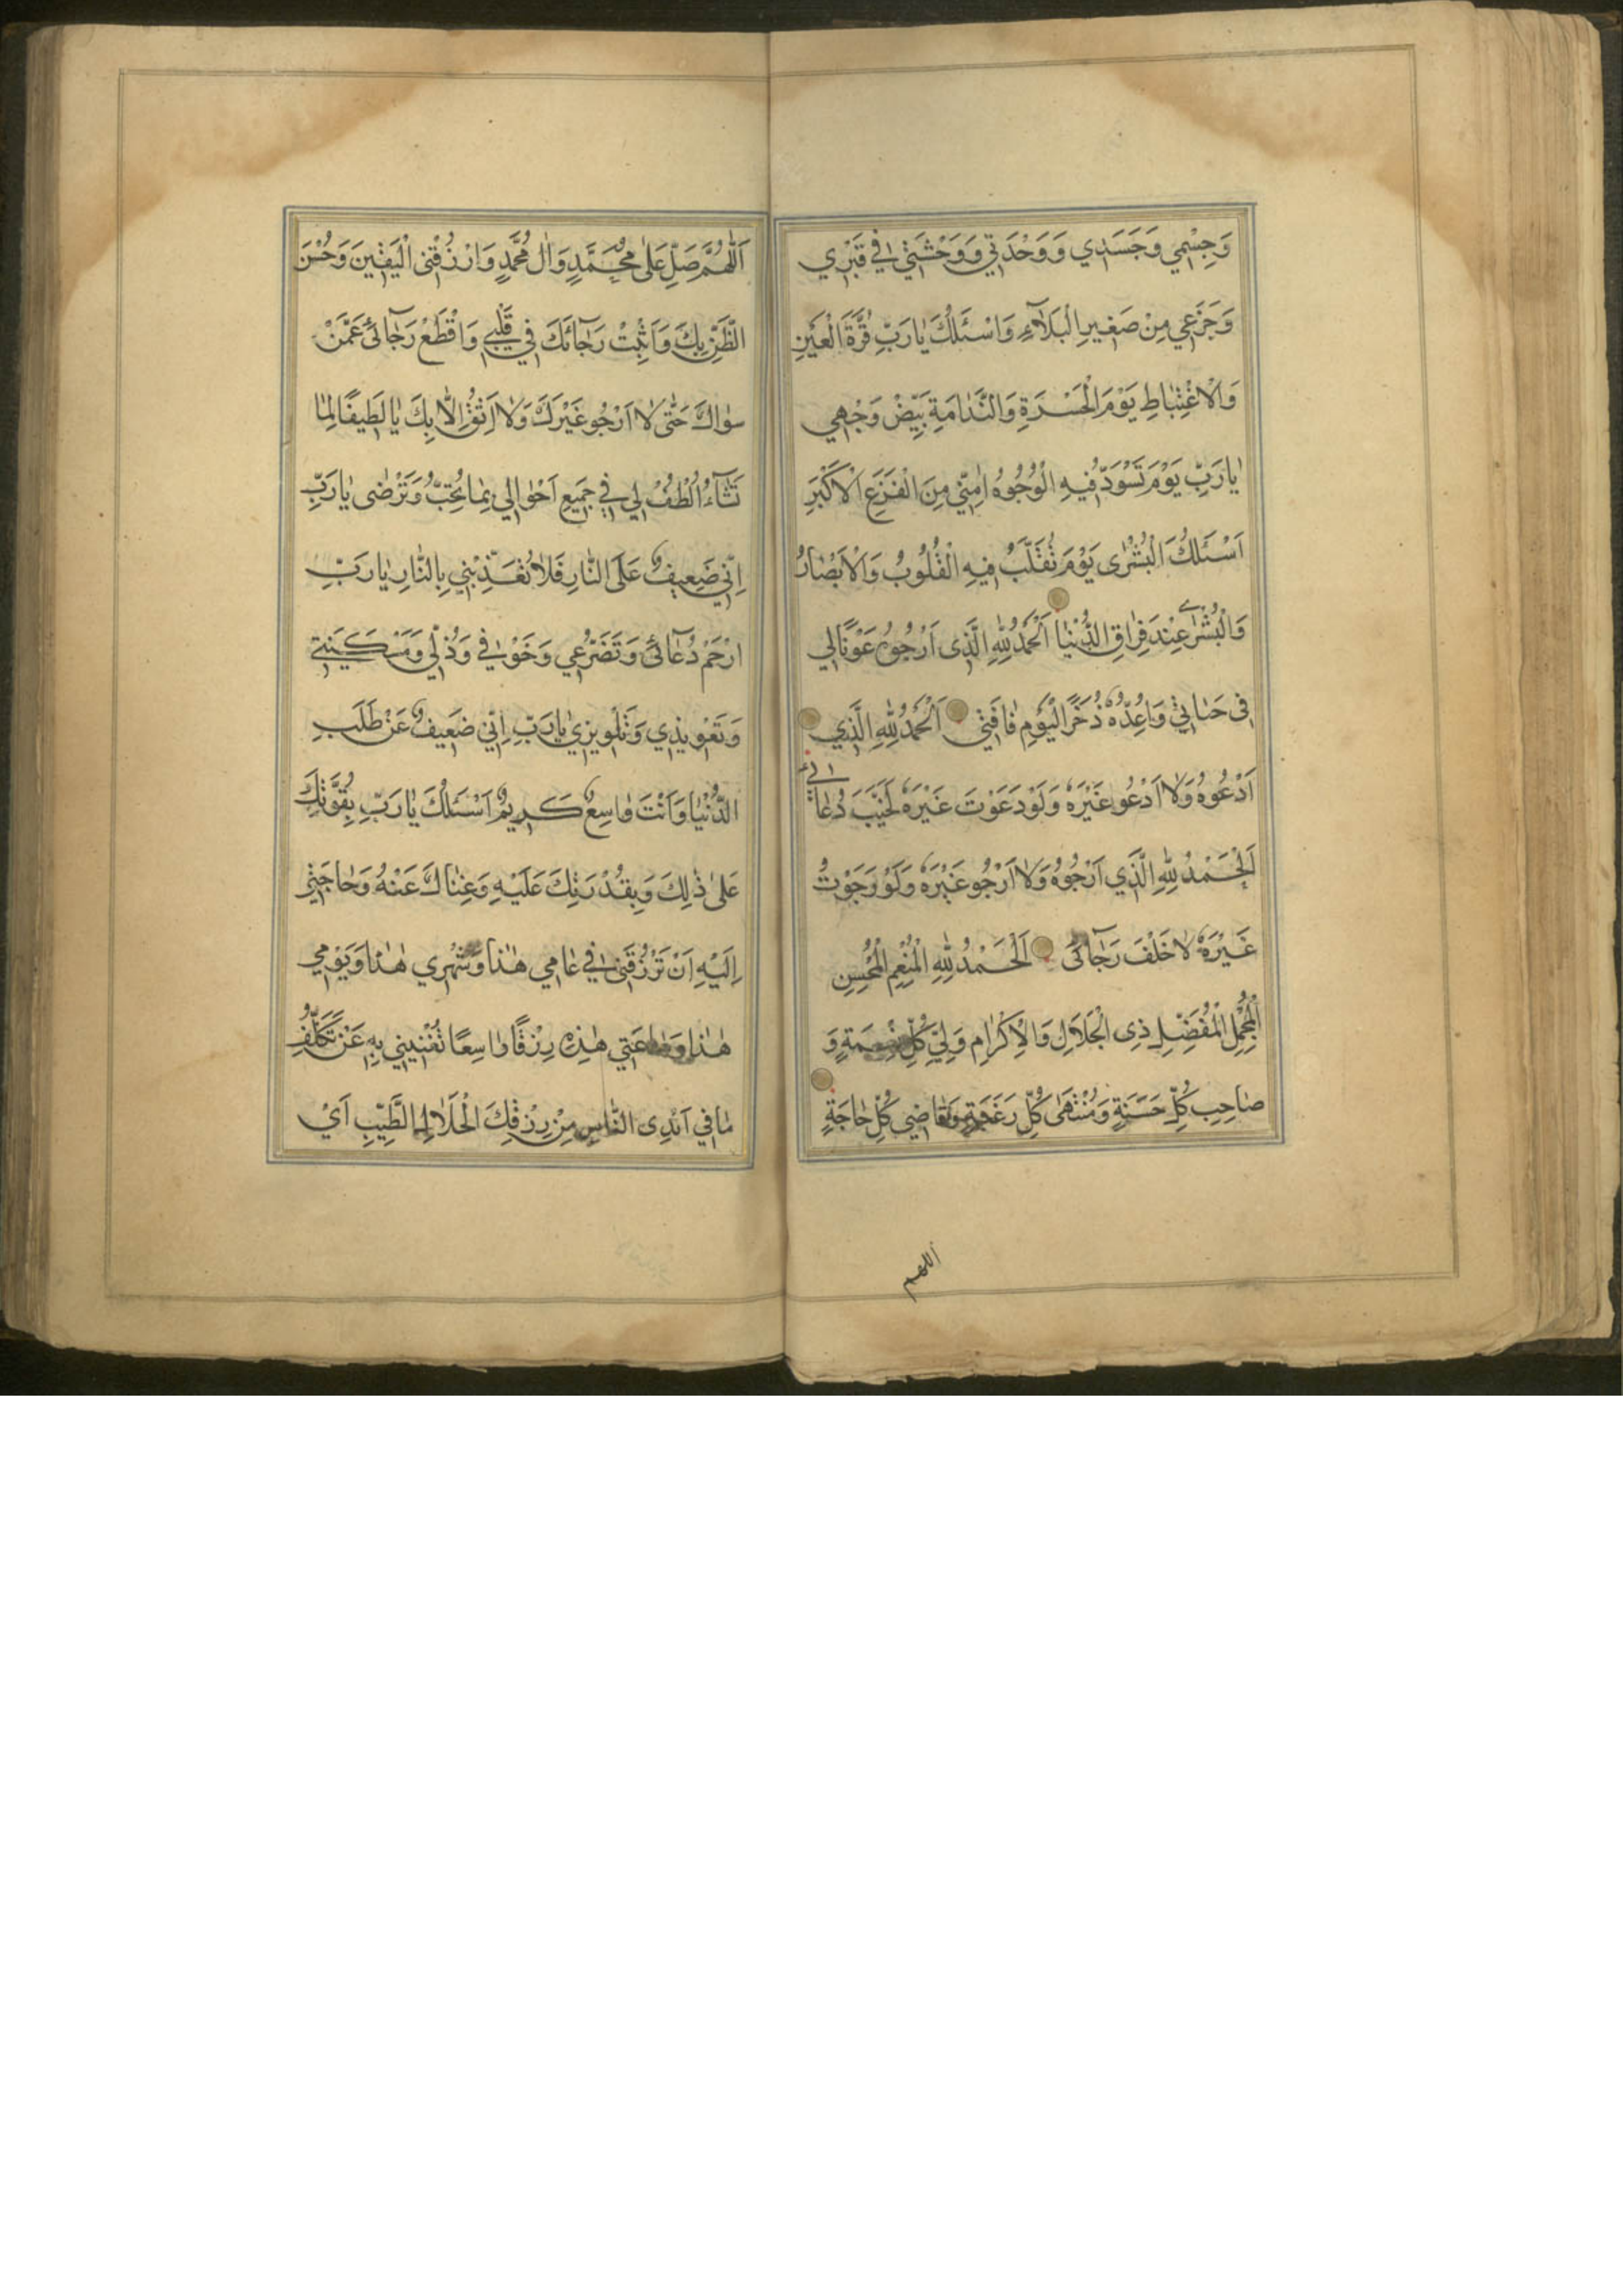 وَجِسْمِي وَجَسَدِي وَوَحْدَتِي وَوَحْشَتِي فِي قَبْرِي
وَجَزَعِي مِنْ صَغِيرِ الْبَلَآءِ وَاَسْئَلُكَ يَا رَبِّ قُرَّةَ الْعَيْنِ
وَالْاِغْتِبَاطِ يَوْمَ الْحَسْرَةِ وَالنَّدَامَةِ بَيِّضْ وَجْهِي
يَا رَبِّ يَوْمَ تَسْوَدُّ فِيهِ الْوُجُوهُ اٰمِنِّي مِنَ الْفَزَعِ الْاَكْبَرِ
اَسْئَلُكَ الْبُشْرٰى يَوْمَ تُقَلَّبُ فِيهِ الْقُلُوبُ وَالْاَبْصَارُ
وَالْبُشْرٰى عِنْدَ فِرَاقِ الدُّنْيَا اَلْحَمْدُ لِلّٰهِ الَّذِى اَرْجُوهُ عَوْنًا لِي
فِى حَيَاتِي وَاُعِدُّهُ ذُخْرًا لِيَوْمِ فَاقَتِي اَلْحَمْدُ لِلّٰهِ الَّذِي
اَدْعُوهُ وَلَا اَدْعُو غَيْرَهُ وَلَوْ دَعَوْتُ غَيْرَهُ لَخَيَّبَ دُعَائِي
اَلْحَمْدُ لِلّٰهِ الَّذِي اَرْجُوهُ وَلَا اَرْجُو غَيْرَهُ وَلَوْ رَجَوْتُ
غَيْرَهُ لَاَخْلَفَ رَجَآئى اَلْحَمْدُ لِلّٰهِ الْمُنْعِمِ الْمُحْسِنِ
الْمُجْمِلِ الْمُفْضِلِ ذِى الْجَلَالِ وَالْاِكْرَامِ وَلِيِّ كُلِّ نِعْمَةٍ وَ
صَاحِبِ كُلِّ حَسَنَةٍ وَمُنْتَهٰى كُلِّ رَغْبَةٍ وَقَاضِي كُلِّ حَاجَةٍ
اللهم
اَللّٰهُمَّ صَلِّ عَلٰى مُحَمَّدٍ وَاٰلِ مُحَمَّدٍ وَارْزُقْنِى الْيَقِينَ وَحُسْنَ
الظَّنِّ بِكَ وَاَثْبِتْ رَجَآئَكَ فِي قَلْبِي وَاقْطَعْ رَجَآئى عَمَّنْ
سِوَاكَ حَتّٰى لَا اَرْجُو غَيْرَكَ وَلَا اَثِقُ اِلَّا بِكَ يَا لَطِيفًا لِمَا
تَشَآءُ اُلْطُفْ لِي فِي جَمِيعِ اَحْوَالِي بِمَا تُحِبُّ وَتَرْضٰى يَا رَبِّ
اِنِّي ضَعِيفٌ عَلَى النَّارِ فَلَا تُعَذِّبْنِي بِالنَّارِ يَا رَبِّ
ارْحَمْ دُعَآئى وَتَضَرُّعِي وَخَوْفِي وَذُلِّي وَمَسْكَنَتِي
وَتَعْوِيذِي وَتَلْوِيزِي يَا رَبِّ اِنِّي ضَعِيفٌ عَنْ طَلَبِ
الدُّنْيَا وَاَنْتَ وَاسِعٌ كَرِيمٌ اَسْئَلُكَ يَا رَبِّ بِقُوَّتِكَ
عَلٰى ذٰلِكَ وَبِقُدْرَتِكَ عَلَيْهِ وَغِنَاكَ عَنْهُ وَحَاجَتِي
اِلَيْهِ اَنْ تَرْزُقَنِى فِي عَامِي هٰذَا وَشَهْرِي هٰذَا وَيَوْمِي
هٰذَا وَسَاعَتِي هٰذِهِ رِزْقًا وَاسِعًا تُغْنِينِي بِهِ عَنْ تَكَلُّفِ
مَا فِي اَيْدِى النَّاسِ مِنْ رِزْقِكَ الْحَلَالِ الطَّيِّبِ اَيْ